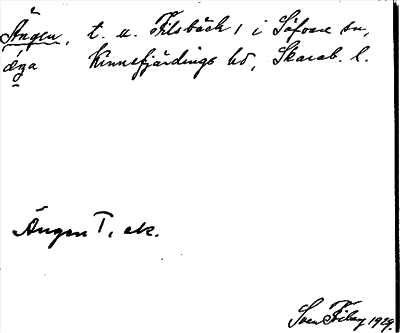 Ängen, t. u. Filsbäck 1 i Säfvare sn,
äŋa Kinnefjärdings hd, Skarab. l.
Ängen T, ek.
Sven Friberg 1929.